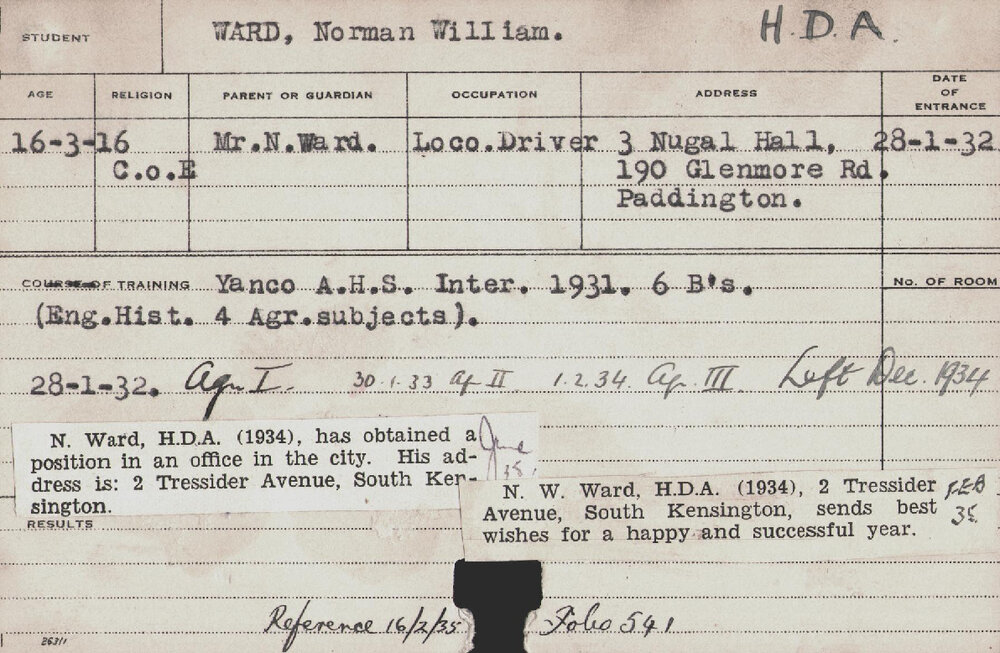 STUDENT WARD, Norman William. H.D.A.
AGE RELIGION PARENT OR GUARDIAN OCCUPATION ADDRESS DATE OF ENTRANCE
16-3-16 Mr.N.Ward. Loco.Driver 3 Nugal Hall, 28-1-32
C.o.E 190 Glenmore Rd.
Paddington.
COURSE OF TRAINING Yanco A.H.S. Inter. 1931. 6 B's. No. OF ROOM
(Eng.Hist. 4 Agr.subjects).
28-1-32. Agr I. 30.1.33 Ag II 1.2.34 Ag. III Left Dec. 1934
N. Ward, H.D.A. (1934), has obtained a June
position in an office in the city. His ad-
dress is: 2 Tressider Avenue, South Ken-
sington.
N. W. Ward, H.D.A. (1934), 2 Tressider FEB
Avenue, South Kensington, sends best 35
wishes for a happy and successful year.
RESULTS
Reference 16/2/35 Folio 541
26311